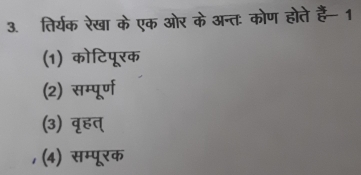 3. तिर्यक रेखा के एक ओर के अन्तः कोण होते हैं– 1
(1) कोटिपूरक
(2) सम्पूर्ण
(3) वृहत्
(4) सम्पूरक